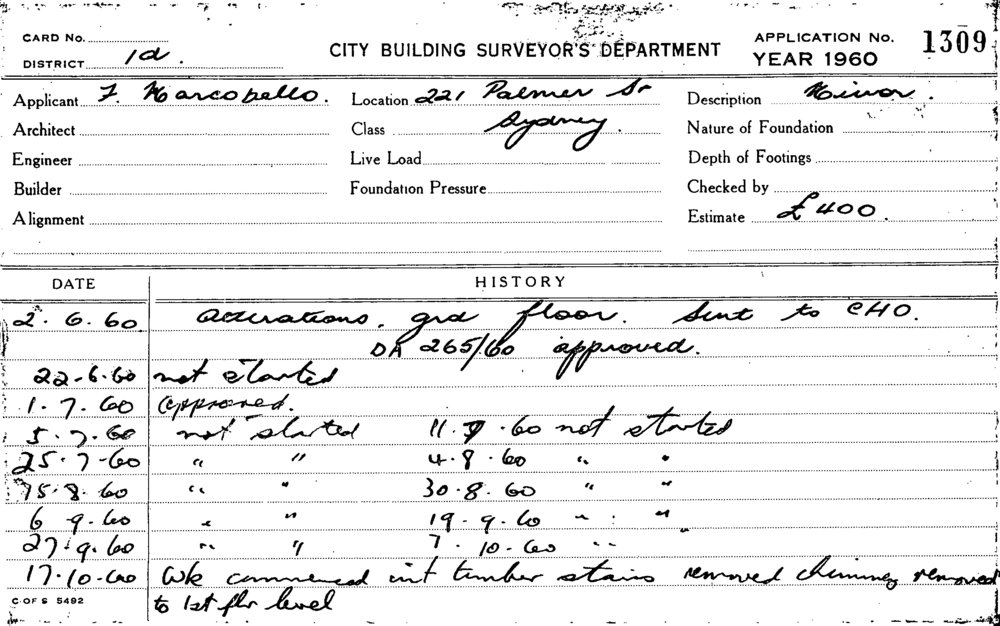 CARD No.
DISTRICT 1d.
CITY BUILDING SURVEYOR'S DEPARTMENT
APPLICATION No. 1309
YEAR 1960
Applicant F. Marcobello. Location 221 Palmer St Description Minor.
Architect Class Sydney. Nature of Foundation
Engineer Live Load Depth of Footings
Builder Foundation Pressure Checked by
Alignment Estimate £400.
DATE HISTORY
2.6.60 Alterations. grd floor. Sent to CHO.
DA 265/60 approved.
22-6-60 not started
1.7.60 approved.
5.7.60 not started 11.7.60 not started
25.7-60 " " 4.8.60 " "
15.8.60 " " 30.8.60 " "
6 9.60 " " 19.9.60 " "
27.9.60 " " 7.10.60 "
17.10.60 Wk commenced int timber stairs removed chimney removed
to 1st flr level
C OF S 5492